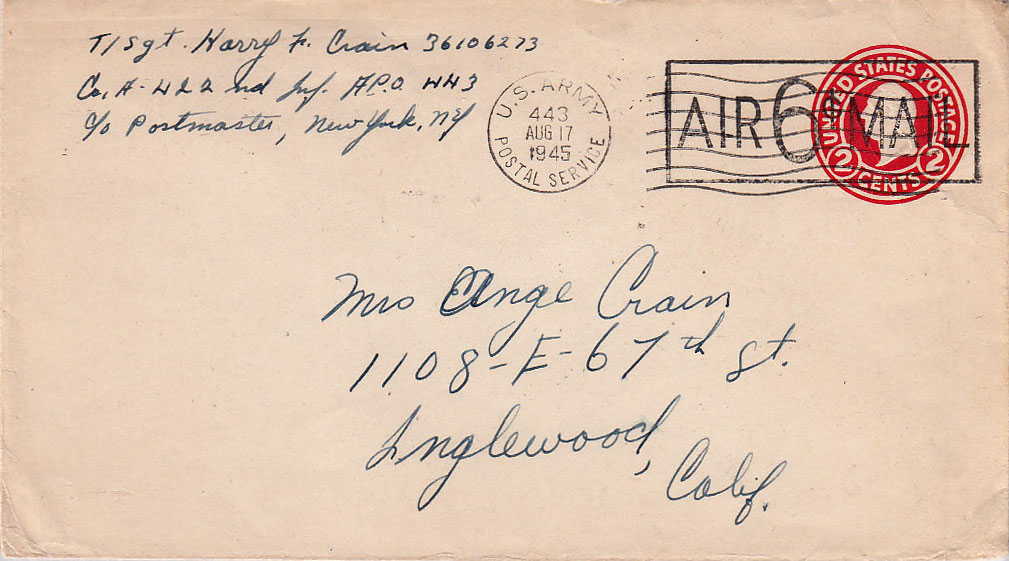 T/Sgt. Harry F. Crain 36106273
Co. A - 422 nd Inf. APO 443
c/o Postmaster, New York, NY
U.S. ARMY
443
AUG 17
1945
POSTAL SERVICE
AIR 6¢ MAIL
UNITED STATES POSTAGE
2 CENTS 2
Mrs Ange Crain
1108-E-67th St.
Inglewood,
Calif.